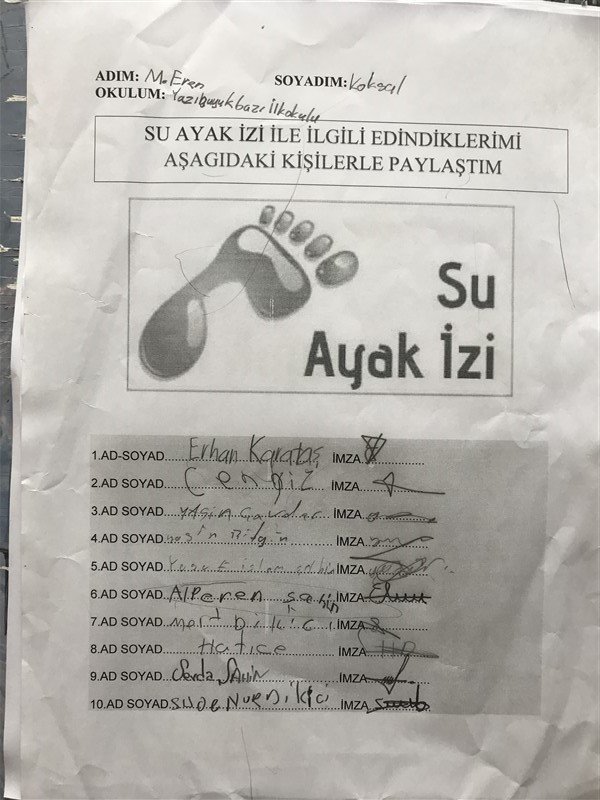 ADIM: M. Eren SOYADIM: Koksal
OKULUM: Yazıbaşı ilkokulu
SU AYAK İZİ İLE İLGİLİ EDİNDİKLERİMİ
AŞAGIDAKİ KİŞİLERLE PAYLAŞTIM
Su
Ayak İzi
1.AD-SOYAD Erhan Karataş İMZA
2.AD SOYAD Cengiz İMZA
3.AD SOYAD İMZA
4.AD SOYAD İMZA
5.AD SOYAD Yusuf islam İMZA
6.AD SOYAD Alperen şahin İMZA
7.AD SOYAD mert dikici İMZA
8.AD SOYAD Hatice İMZA
9.AD SOYAD Sevda ŞAHİN İMZA
10.AD SOYAD SUDE NUR Dikici İMZA